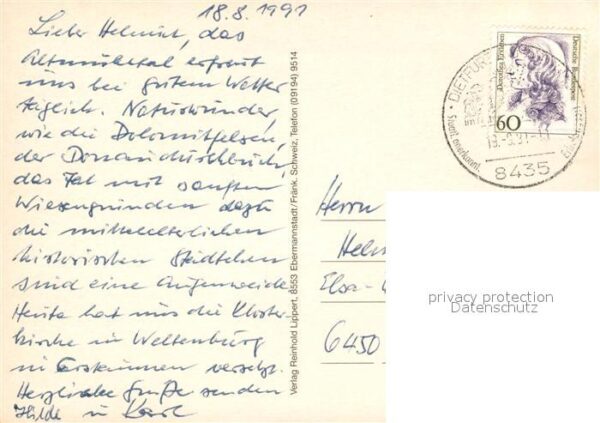 18.8.1991
Lieber Helmut, das
Altmühltal erfreut
uns bei gutem Wetter
täglich. Naturwunder,
wie die Dolomitfelsen,
der Donaudurchbruch
das Tal mit sanften
Wiesengründen dazu
die mittelalterlichen
historischen Städtchen
sind eine Augenweide
Heute hat uns die Kloster
kirche in Weltenburg
in Erstaunen versetzt.
Herzliche Grüße senden
Hilde u Karl
Verlag Reinhold Lippert, 8553 Ebermannstadt/Fränk. Schweiz, Telefon (09194) 9514
Herrn
Helm
Elsa-
6450
Deutsche Bundespost
Dorothea Erxleben
60
DIETFURT
Staatl. anerkannt.
8435
privacy protection
Datenschutz